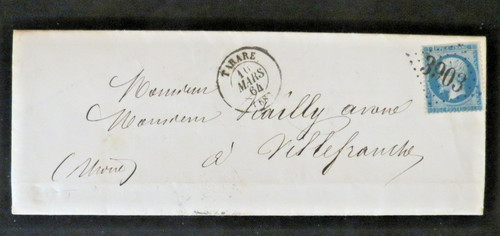 TARARE
16
MARS
64
(68)
3903
Monsieur
Monsieur Sailly avoué
à Villefranche
(Rhône)